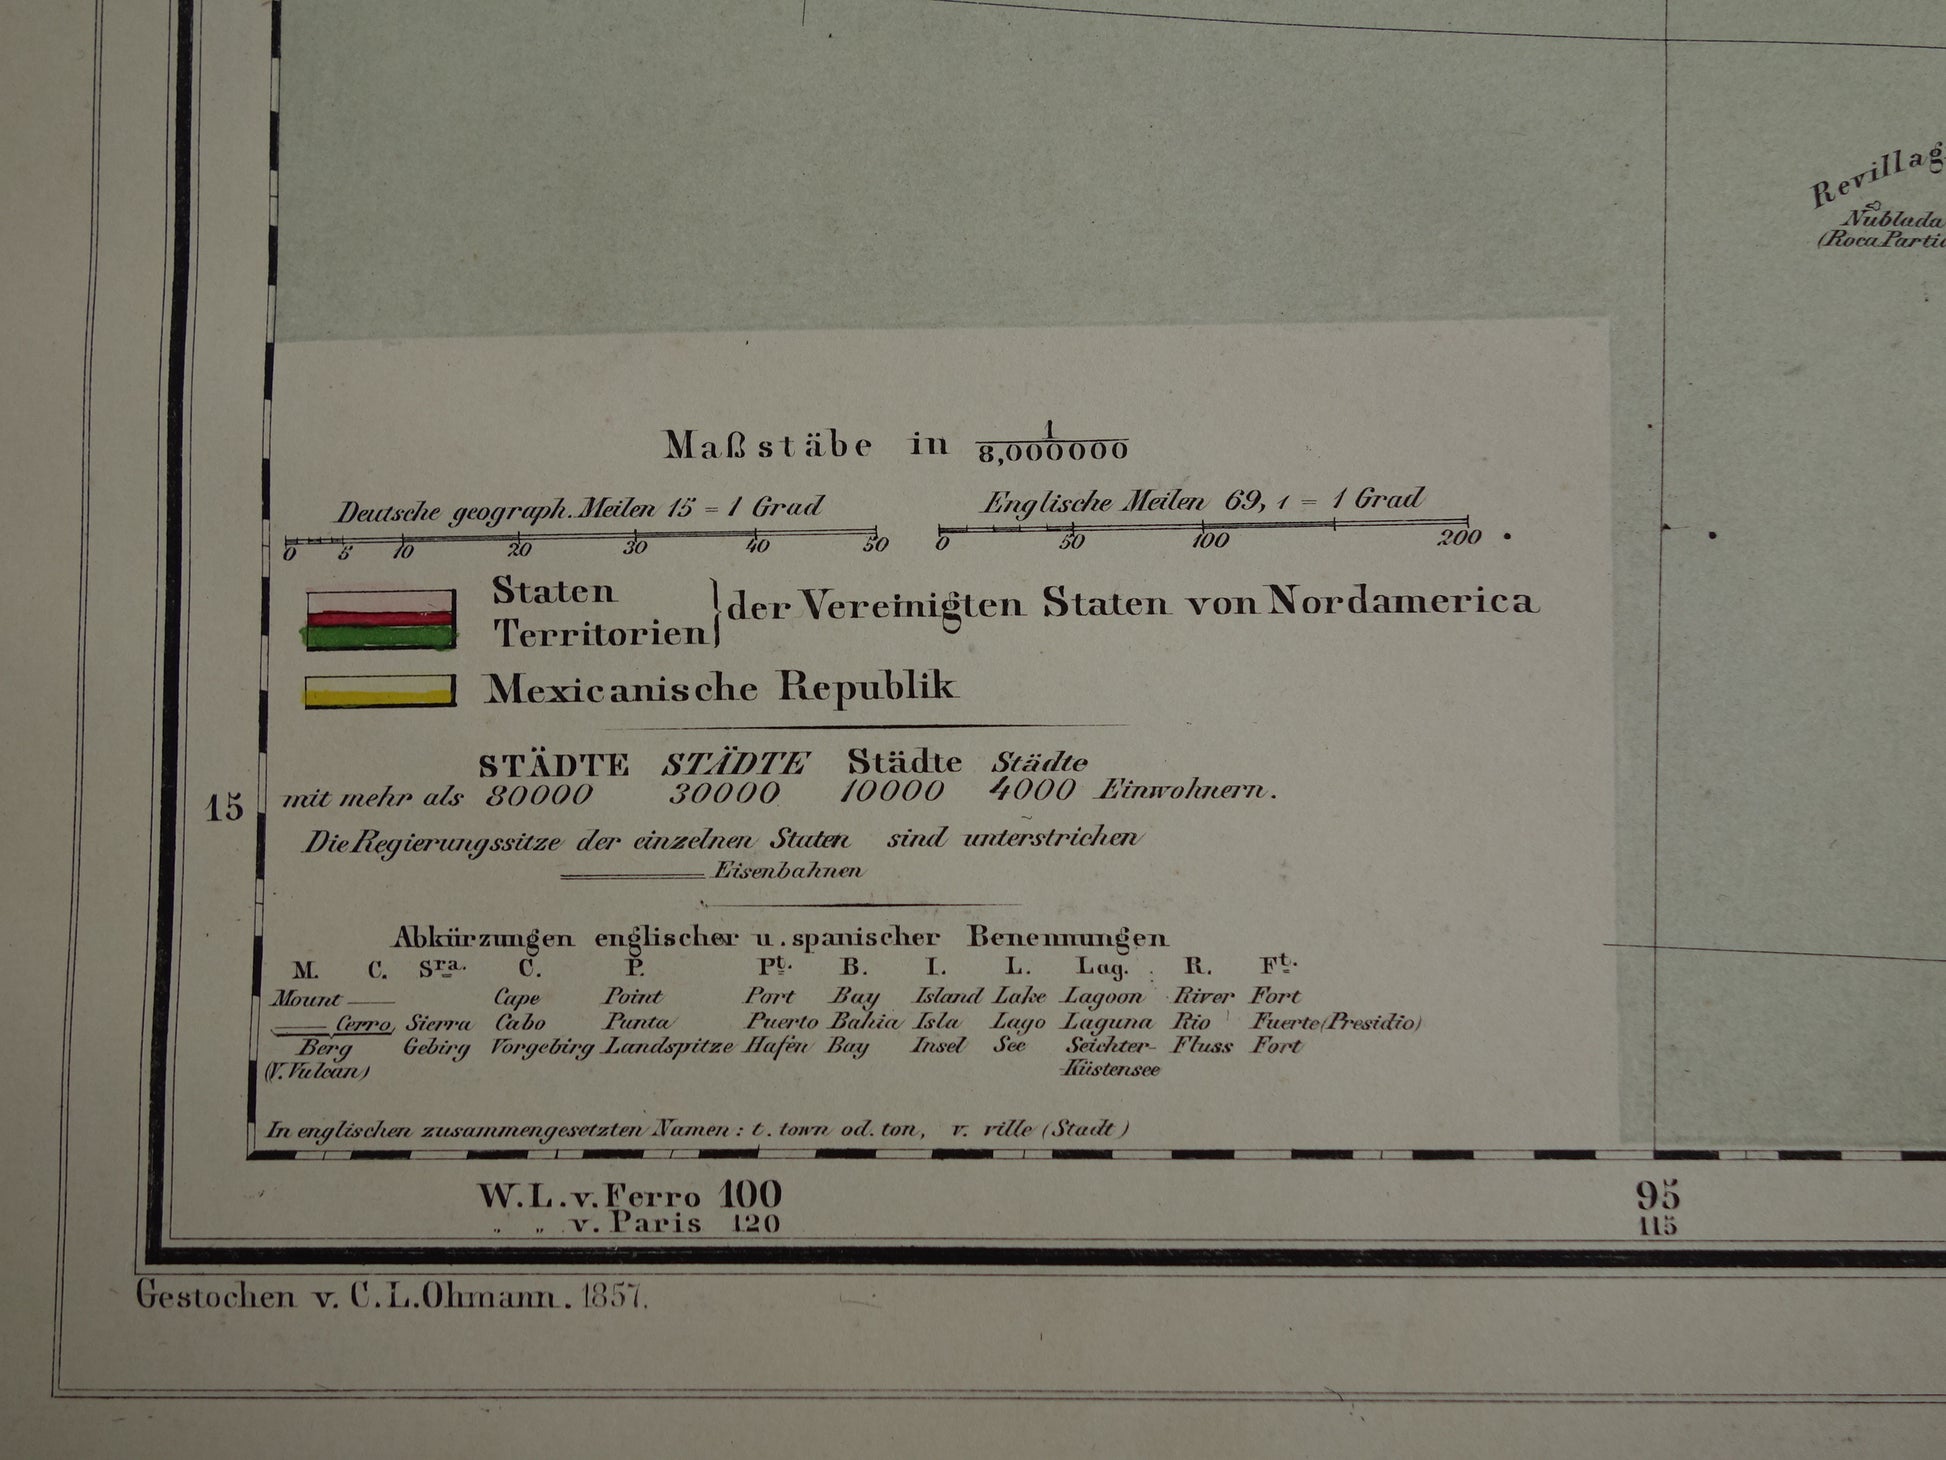 Revillag
Nublada
(Roca Parti
Maßstäbe in 1/8,000000
Deutsche geograph. Meilen 15 = 1 Grad
0 5 10 20 30 40 50
Englische Meilen 69,1 = 1 Grad
0 50 100 200
Staten
Territorien} der Vereinigten Staten von Nordamerica
Mexicanische Republik
STÄDTE STÄDTE Städte Städte
15
mit mehr als 80000 30000 10000 4000 Einwohnern.
Die Regierungssitze der einzelnen Staten sind unterstrichen
Eisenbahnen
Abkürzungen englischer u. spanischer Benennungen
M. C. Sra. C. P. Pt. B. I. L. Lag. R. Ft.
Mount — Cape Point Port Bay Island Lake Lagoon River Fort
— Cerro, Sierra Cabo Punta Puerto Bahia Isla Lago Laguna Rio Fuerte (Presidio)
Berg Gebirg Vorgebirg Landspitze Hafen Bay Insel See Seichter- Fluss Fort
(V. Vulcan) Küstensee
In englischen zusammengesetzten Namen: t. town od. ton, v. ville (Stadt)
W. L. v. Ferro 100 95
„ „ v. Paris 120 115
Gestochen v. C. L. Ohmann. 1857.